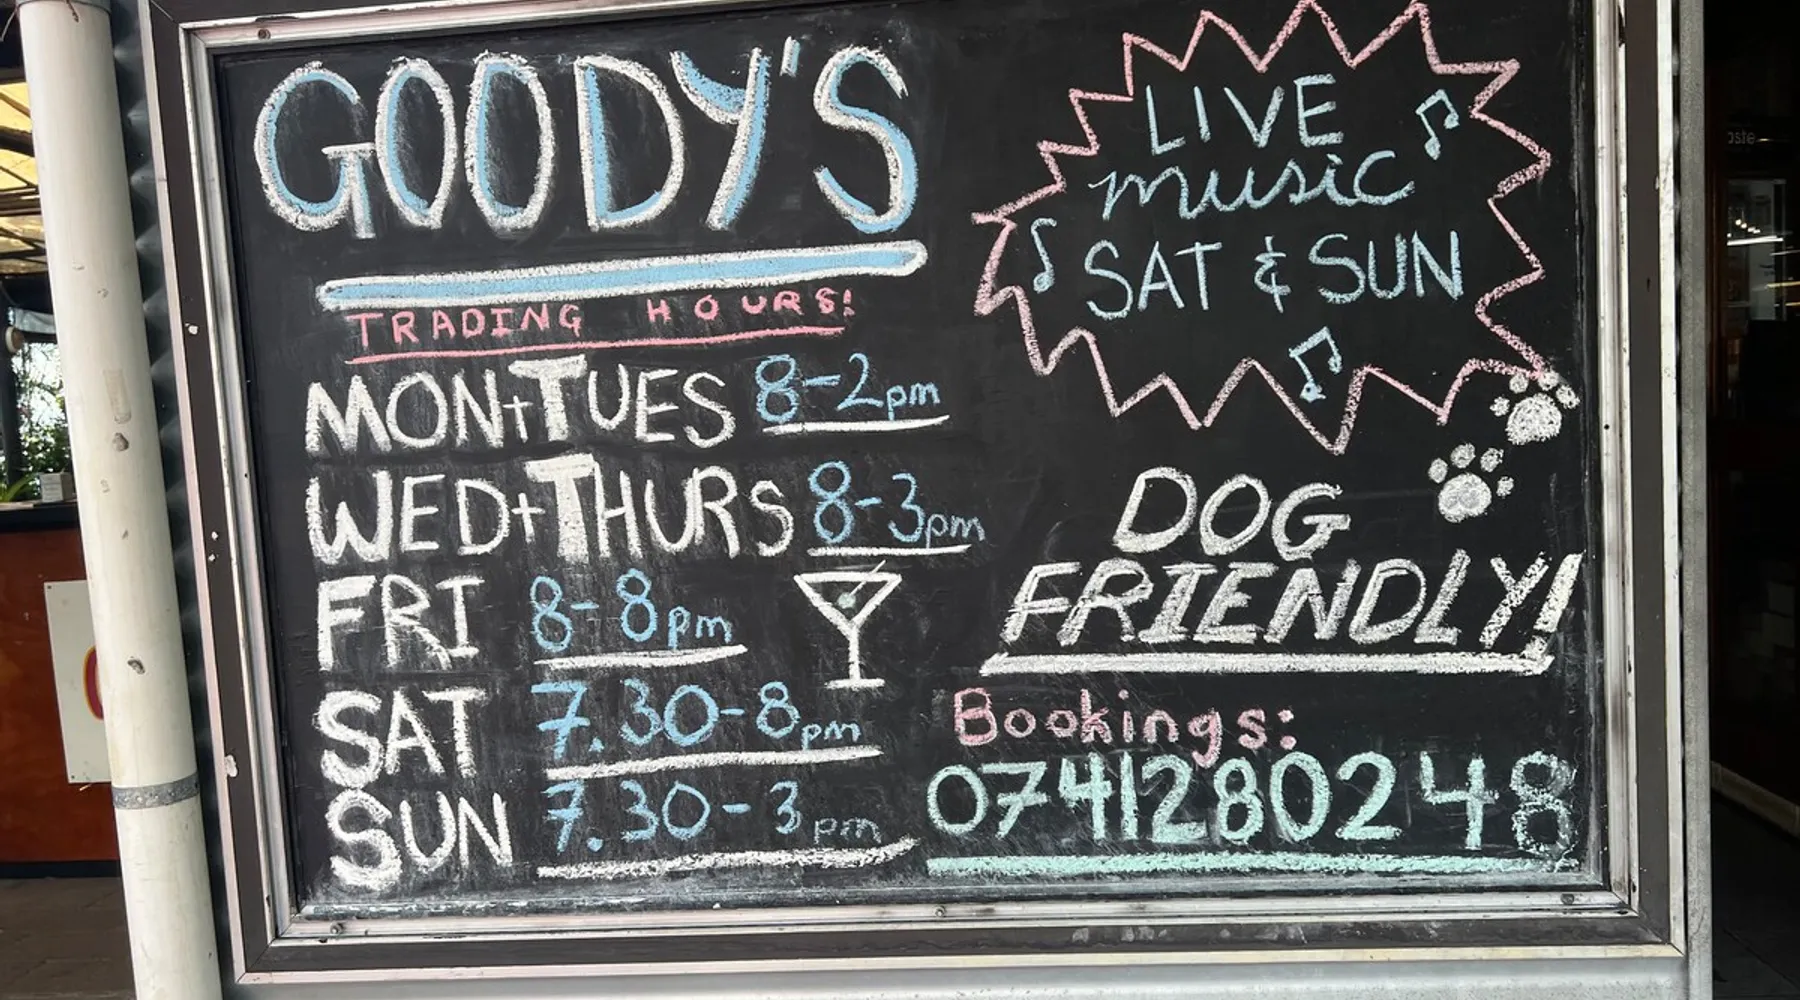 GOODY'S
TRADING HOURS!
MON+TUES 8-2pm
WED+THURS 8-3pm
FRI 8-8pm
SAT 7.30-8pm
SUN 7.30-3pm
LIVE
music
SAT & SUN
DOG
FRIENDLY!
Bookings:
0741280248